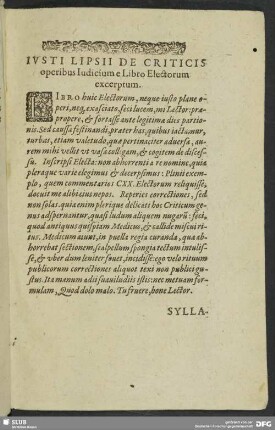 IVSTI LIPSII DE CRITICIS
operibus Iudicium e Libro Electorum
excerptum.
LIBRO huic Electorum, neque iusto plane o-
peri, neq, exasciato, feci lucem, mi Lector: præ-
propere, & fortasse ante legitima dies partio-
nis. Sed caussa festinandi, præter has, quibus iactamur,
turbas, etiam valetudo, quæ pertinaciter aduersa, au-
rem mihi vellit vt vasa colligam, & cogitem de discess-
su. Inscripsi Electa: non abhorrenti a re nomine, quia
pleraque varie elegimus & decerpsimus: Plinii exem-
plo, quem commentarios CXX. Electorum reliquisse,
docuit me alibi eius nepos. Reperies correctiones, sed
non solas. quia enim plerique delicati hoc Criticum ge-
nus adspernantur, quasi ludum aliquem nugarū: feci,
quod antiquus quispiam Medicus, & callide miscui vti-
les. Medicum aiunt, in puella regia curanda, qua ab-
horrebat sectionem, scalpellum spongia tectum intulis-
se, & vber dum leniter fouet, incidisse: ego velo rituum
publicorum correctiones aliquot texi non publici gu-
stus. Ita manum adsi suauiludiis istis: nec metuam for-
mulam, Quod dolo malo. Tu fruere, bone Lector.
SYLLA-
SLUB
DFG